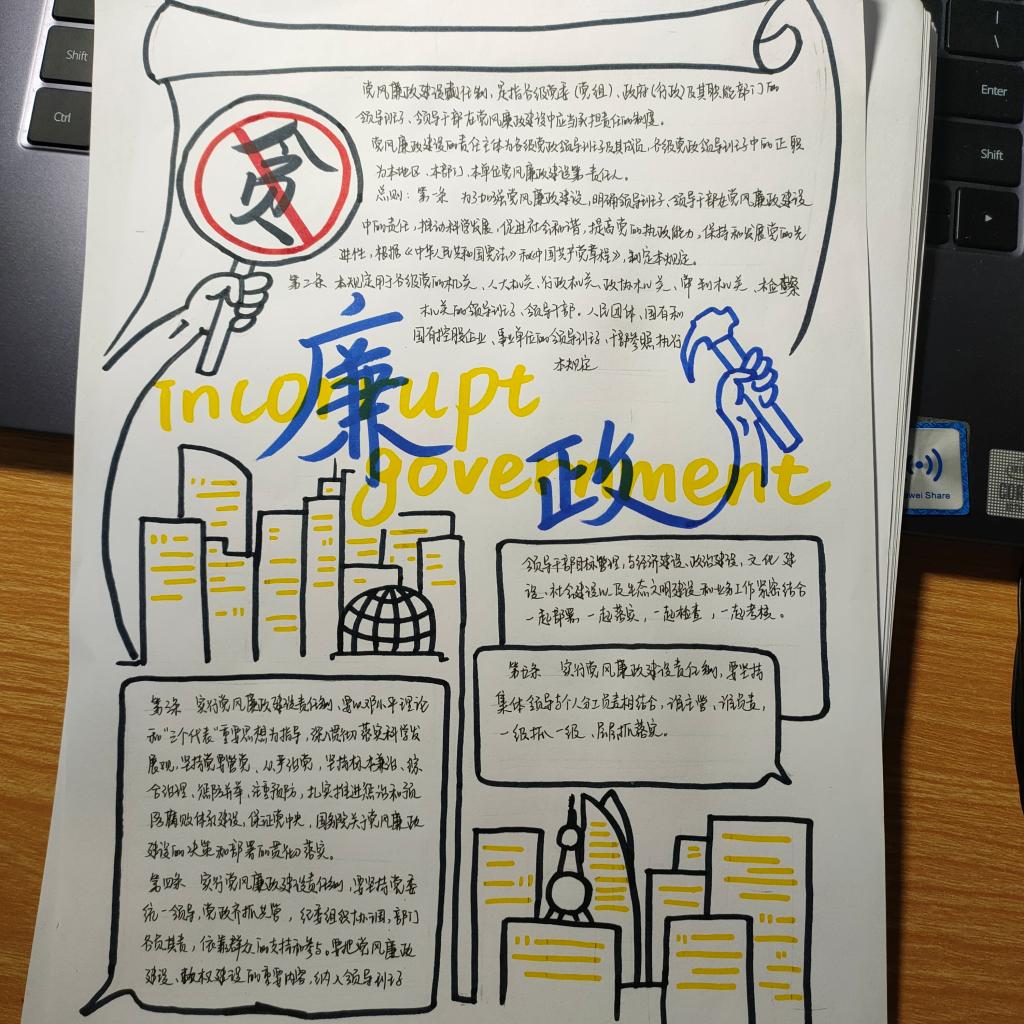 党风廉政建设责任制，是指各级党委（党组）、政府（行政）及其职能部门的
领导班子、领导干部在党风廉政建设中应当承担责任的制度。
党风廉政建设的责任主体为各级党政领导班子及其成员，各级党政领导班子中的正职
为本地区、本部门、本单位党风廉政建设第一责任人。
总则：第一条 为了加强党风廉政建设，明确领导班子、领导干部在党风廉政建设
中的责任，推动科学发展，促进社会和谐，提高党的执政能力，保持和发展党的先
进性，根据《中华人民共和国宪法》和《中国共产党章程》，制定本规定。
第二条 本规定用于各级党的机关、人大机关、行政机关、政协机关、审判机关、检察
机关的领导班子、领导干部。人民团体、国有和
国有控股企业、事业单位的领导班子、干部参照执行
本规定
贪
廉
incorrupt
政
government
领导干部目标管理，与经济建设、政治建设，文化建
设、社会建设以及生态文明建设和业务工作紧密结合
一起部署，一起落实，一起检查，一起考核。
第五条 实行党风廉政建设责任制，要坚持
集体领导与个人分工负责相结合，谁主管、谁负责，
一级抓一级、层层抓落实。
第三条 实行党风廉政建设责任制，要以邓小平理论
和“三个代表”重要思想为指导，深入贯彻落实科学发
展观，坚持党要管党、从严治党，坚持标本兼治、综
合治理、惩防并举、注重预防，扎实推进惩治和预
防腐败体系建设，保证党中央、国务院关于党风廉政
建设的决策和部署的贯彻落实。
第四条 实行党风廉政建设责任制，要坚持党委
统一领导，党政齐抓共管，纪委组织协调，部门
各负其责，依靠群众的支持和参与。要把党风廉政
建设、政权建设的重要内容，纳入领导班子
Shift
Ctrl
Enter
Shift
Huawei Share